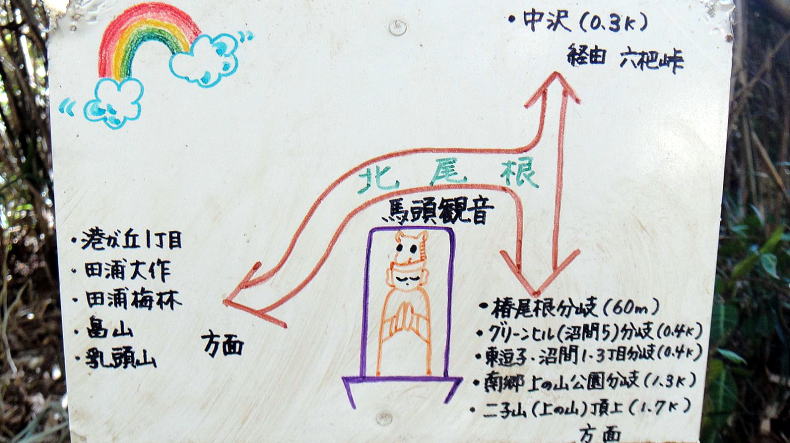 ・中沢(0.3K)
経由 六把峠
北尾根
馬頭観音
・港が丘1丁目
・田浦大作
・田浦梅林
・畠山
・乳頭山
方面
・椿尾根分岐(60m)
・グリーンヒル(沼間5)分岐(0.4K)
・東逗子・沼間1-3丁目分岐(0.4K)
・南郷上の山公園分岐(1.3K)
・二子山(上の山)頂上(1.7K)
方面